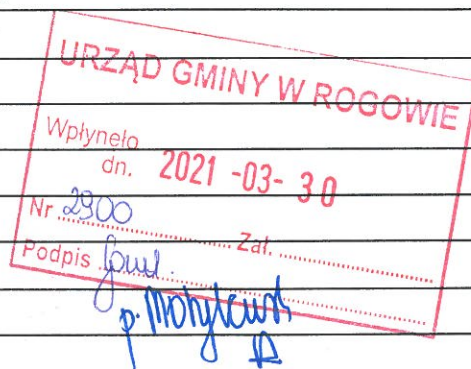 URZĄD GMINY W ROGOWIE
Wpłynęło
dn. 2021 -03- 30
Nr 2900
Zał.
Podpis
p.